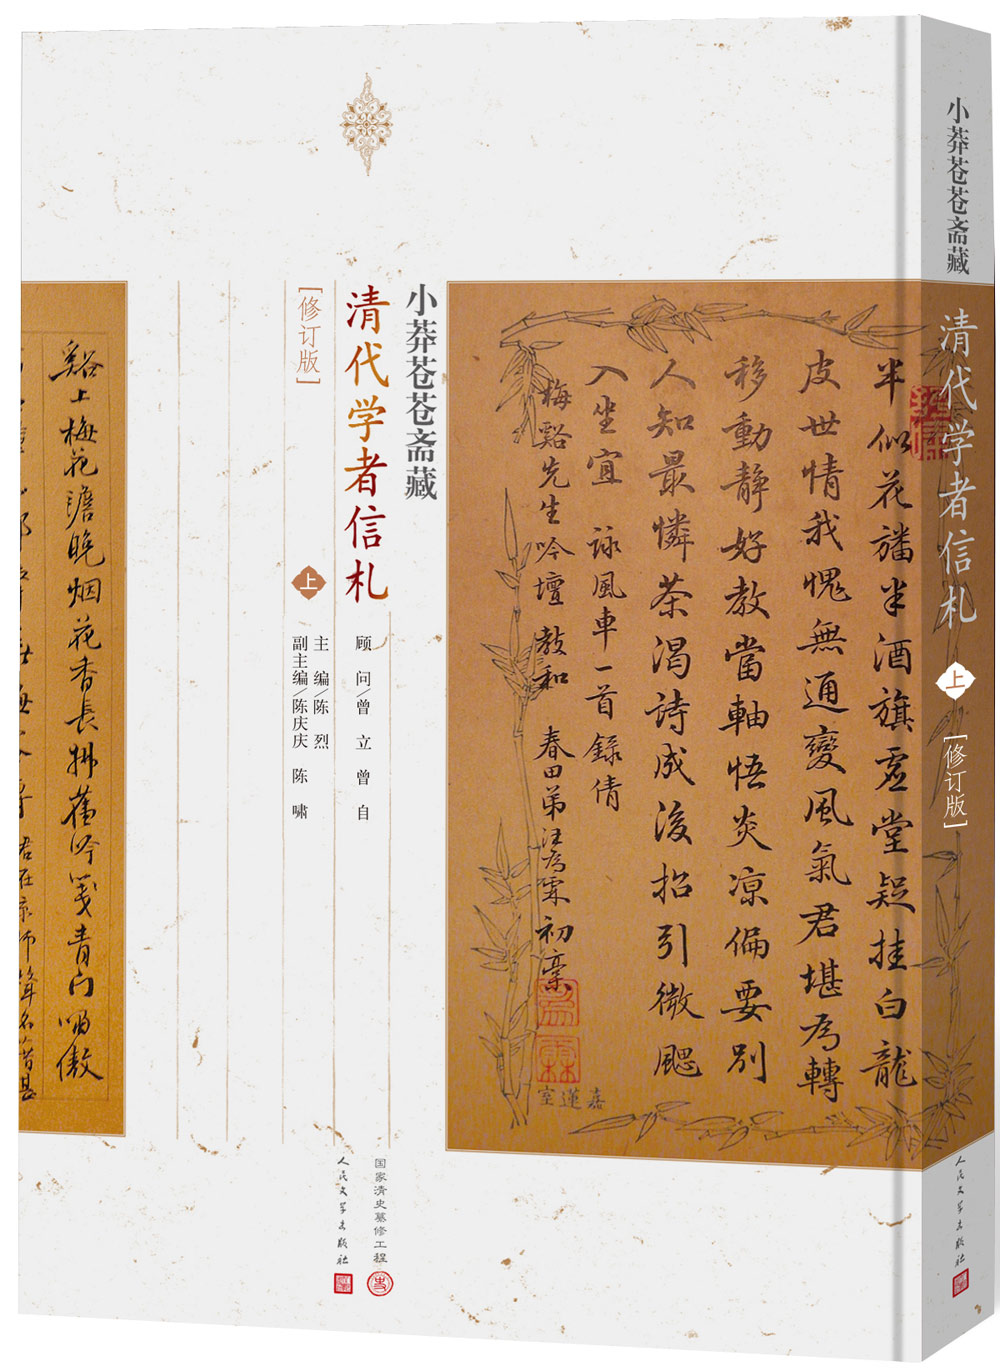 小莽苍苍斋藏
清代学者信札
[修订版]
上
顾 问/曾 立 曾 自
主 编/陈 烈
副主编/陈庆庆 陈 啸
国家清史纂修工程
人民文学出版社
半似花旛半酒旗虚堂疑挂白龙
皮世情我愧無通變風氣君堪為轉
移動静好教當軸悟炎凉偏要别
人知最憐茶渴詩成後招引微颸
入坐宜 詠風車一首録倩
梅谿先生吟壇教和 春田弟汪為霖初稾
嘉蓮室
谿上梅花澹晚烟花香長拂舊吟箋青门嘯傲
小莽苍苍斋藏
清代学者信札
上
[修订版]
人民文学出版社